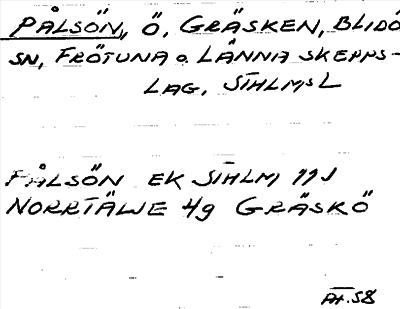 PÅLSÖN, Ö, GRÄSKEN, BLIDÖ
SN, FRÖTUNA o. LÄNNA SKEPPS-
LAG, STHLMS L
PÅLSÖN EK STHLM 11J
NORRTÄLJE 4g GRÄSKÖ
AT. 58